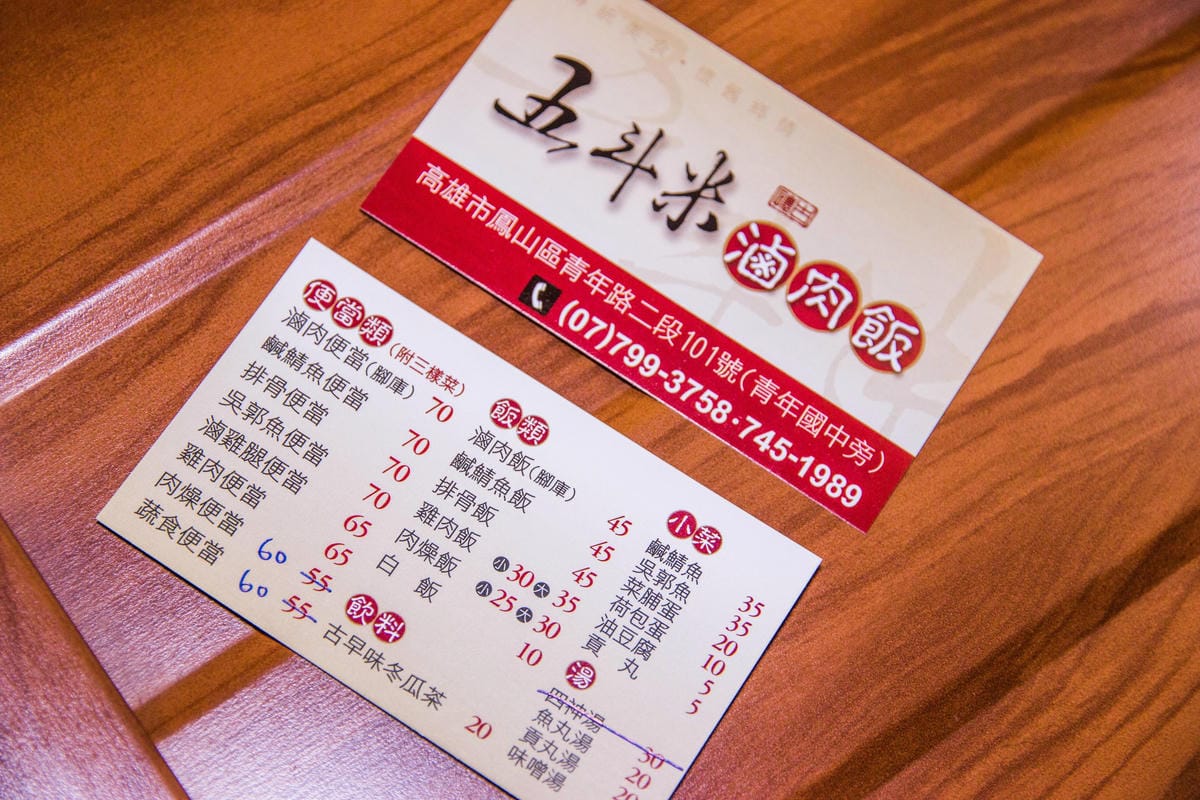 五斗米
滷肉飯
高雄市鳳山區青年路二段101號(青年國中旁)
(07)799-3758·745-1989
便當類(附三樣菜)
滷肉便當(腳庫) 70
鹹鯖魚便當 70
排骨便當 70
吳郭魚便當 70
滷雞腿便當 65
雞肉便當 65
肉燥便當 60 55
蔬食便當 60 55
飲料
古早味冬瓜茶 20
飯類
滷肉飯(腳庫) 45
鹹鯖魚飯 45
排骨飯 45
雞肉飯 小30大35
肉燥飯 小25大30
白飯 10
小菜
鹹鯖魚 35
吳郭魚 35
菜脯蛋 20
荷包蛋 10
油豆腐 5
貢丸 5
湯
四神湯 30
魚丸湯 20
貢丸湯 20
味噌湯